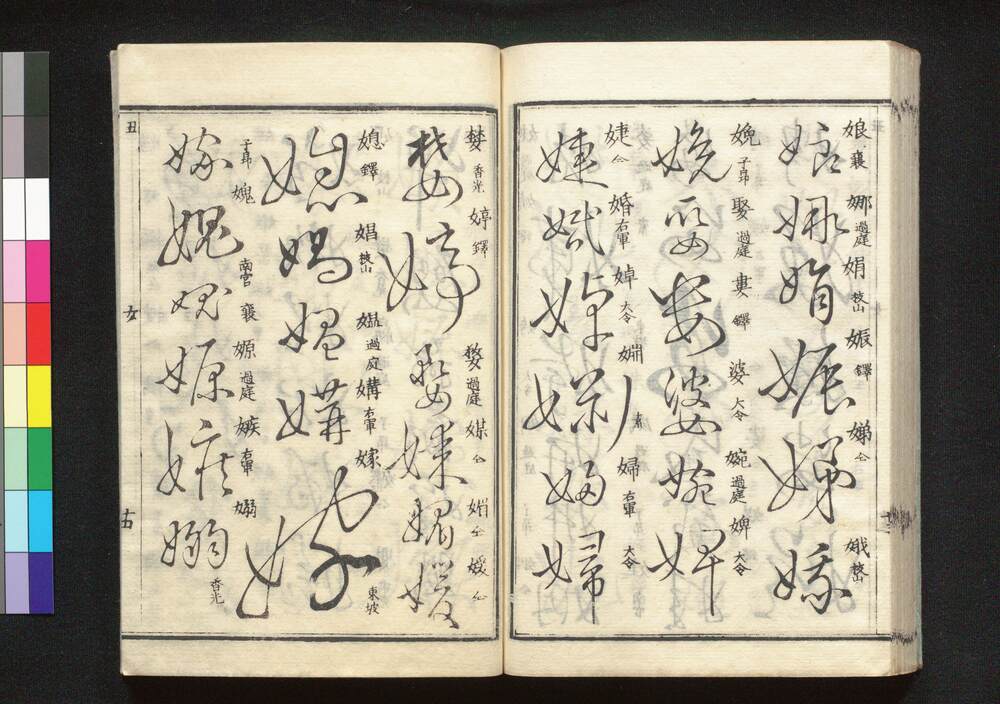 娘 襄 娜 過庭 娟 枝山 娠 鐸 娣 仝 娥 枝山
娩 子昂 娶 過庭 婁 鐸 婆 大令 婉 過庭 婢 大令
婕 仝 婚 右軍 婥 大令 婣 素 婦 右軍 大令
婪 香光 婷 鐸 婺 過庭 媒 仝 媚 仝 媛 仝
媳 鐸 娼 枝山 媪 過庭 媾 右軍 嫁 東坡
子昂 媿 南宮 襄 嫄 過庭 嫉 右軍 嫋 香光
丑 女